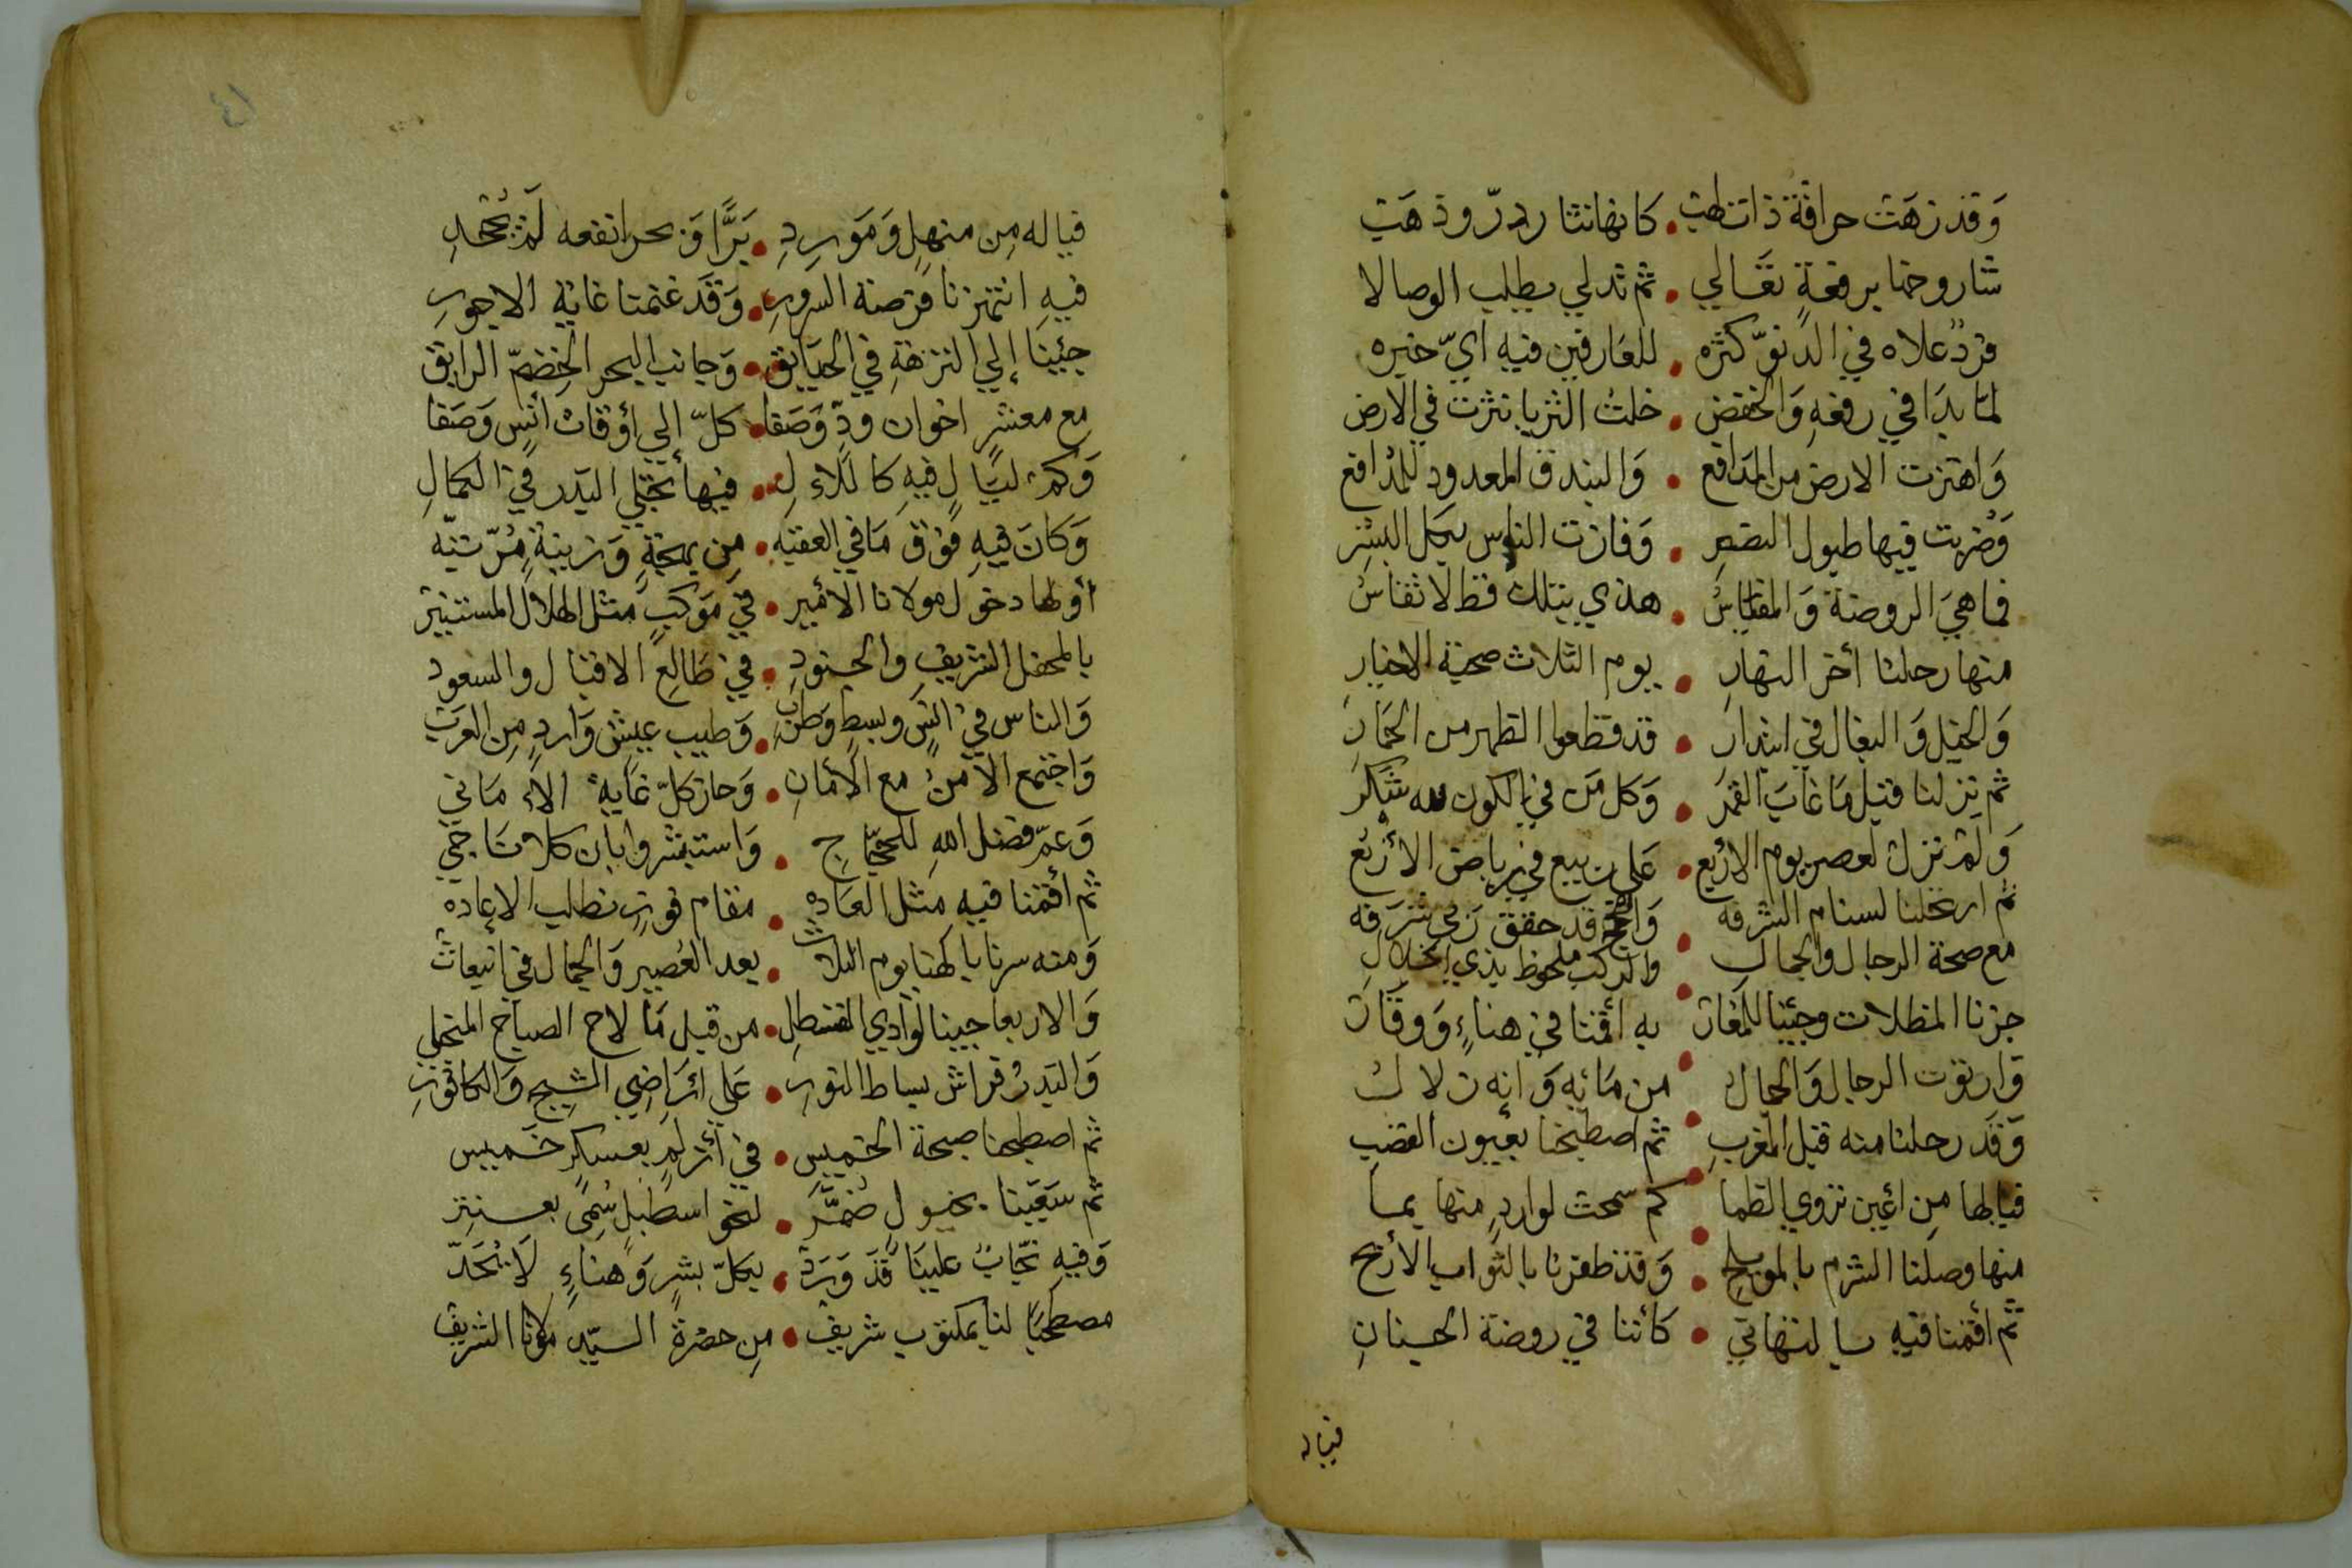 وَقد زهَت حراقة ذات لهب • كانها نثار درّ وذهَب
شاروخها برفعةٍ تعَالي • ثم تدلي يطلب الوصالا
فردٌ علاه في الدنوّ كثره • للعَارفين فيه أيّ خبره
لمّا بدَا في رفعهِ وَالخفض • خلت الثريا نثرت في الارض
وَاهتزت الارض من المدَافع • وَالبندق المعدود للمدافع
وَضربت فيها طبول النصر • وَفازت الناس بكل البشر
فما هيَ الروضة وَالمقياسُ • هذي بتلك قط لا تقاسُ
منها رحلنا أخر النهارِ • يوم الثلاث صحبة الاخيارِ
وَالخيل وَالبغال في ابتدارِ • قد قطعوا الظهر من الحمَارِ
ثم نزلنا قبل مَا غابَ القمَر • وَكل مَن في الكون لله شكر
وَلم نزل لعصر يوم الاربع • علي ربيع في رياض الأربُع
ثم ارتحلنا لسنام الشرفه • وَالحج قد حقق زكى شرَفه
مع صحة الرجال والجمالِ • والركب ملحوظ بذي الجلالِ
جزنا المظلات وجئنا للمغار • به أقمنا في هناءٍ وَوقار
وَارتوت الرجال وَالجمال • من مَائه وَانه زلال
وَقد رحلنا منه قبل المغربِ • ثم اصطبحنا بعيون القصب
فيالها مِن اعين تروي الظما • كم سمحت لواردٍ منها بما
منها وصلنا الشرم بالمويلح • وَقد ظفرنا بالثواب الأرجح
ثم أقمنا فيه بالتهاني • كأننا في روضة الجنانِ
فياله
٤١
فياله مِن منهلٍ وَمَوردِ • بَرًّا وَبحرا نفعه لَم يُجحَدِ
فيهِ انتهزنا فرصة السرورِ • وَقد غنمنا غاية الاجورِ
جئينا إلي النزهةِ في الحدَايق • وَجانب البحر الخِضَمّ الرايق
مع معشرٍ اخوان ودّ وَصَفا • كلّ إلي أوقات أنسٍ وَصَفا
وَكم ليَالٍ فيهِ كاللاءلِ • فيها تجلي البَدر في الكمالِ
وَكانَ فيهِ فوق مَا في العقبه • مِن بهجةٍ وَزينةٍ مُرتبّه
أولها دخول مولانا الأمير • في مَوكبٍ مثل الهلال المستنير
بالمحفل الشريف والجنودِ • في طَالعِ الاقبال والسعودِ
وَالناس في أنسٍ وبسطٍ وَطربٍ • وَطيب عيشٍ وَاردٍ مِن العرب
وَاجتمع الأمنُ مع الأمانِ • وَحاز كلّ غايةَ الأمَاني
وَعمّ فضل اللهِ للحجّاجِ • وَاستبشروا بان كلا نَاجي
ثم أقمنا فيه مثل العَاده • مقام فوزٍ نطلب الإعاده
وَمنه سرنا بالهنا يوم الثلاث • بعد العُصير وَالجمال في انبعاث
وَالاربعا جينا لوَادي القسطلِ • من قبل مَا لاح الصباح المنجلي
وَالبَدرُ فراش بساط النورِ • عَلي ارَاضِي الشِيح وَالكافورِ
ثم اصطبحنا صبحة الخميسِ • في أزلمٍ بعسكرٍ خميس
ثم سَعَينا بخيولٍ ضُمَّرَ • لنحو اسطبلٍ سُمِى بعنتر
وَفيهِ نجّابٌ علينَا قد وَرَد • بكلّ بشرٍ وَهناءٍ لَا يُحَدّ
مصطحبًا لنا بمكتوب شريف • مِن حضرة السيّد مولانا الشريف